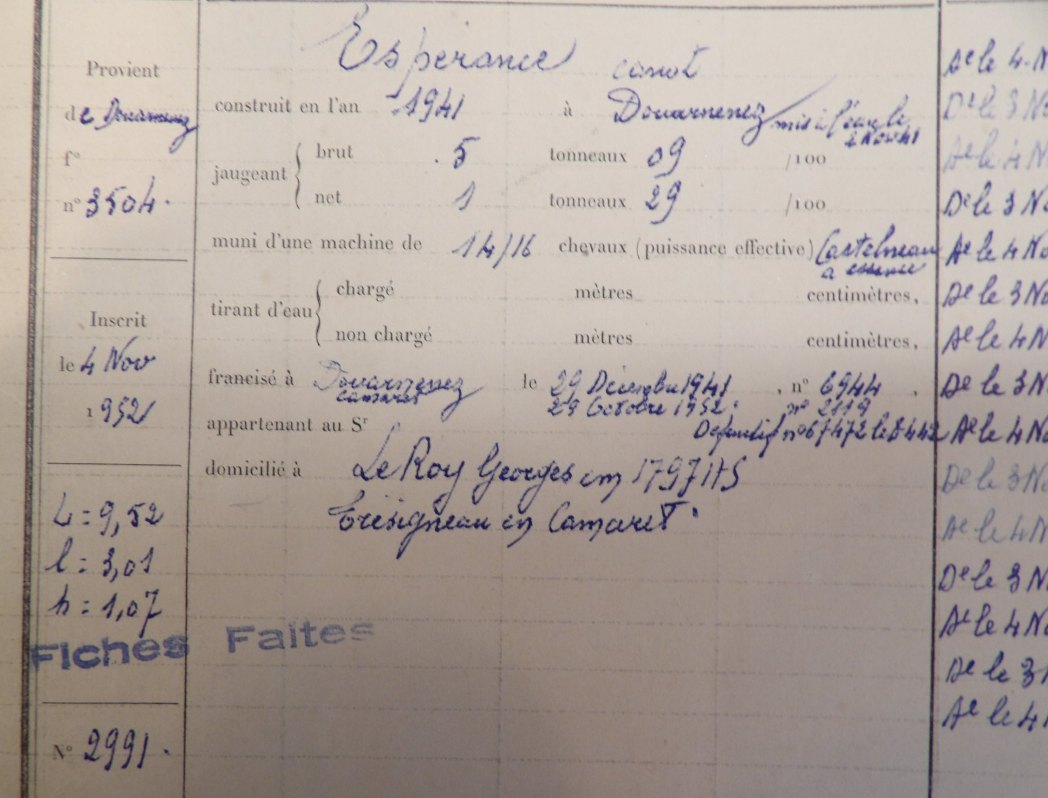 Provient
de Douarnenez
f°
n° 3504.
Inscrit
le 4 Nov
1952
L = 9,52
l = 3,01
h = 1,07
Fiches Faites
N° 2991.
Esperance canot
construit en l'an 1941 à Douarnenez mis à l'eau le
4 Nov 41
jaugeant { brut . 5 tonneaux 09 /100
net 1 tonneaux 29 /100
muni d'une machine de 14/16 chevaux (puissance effective) Castelneau
a essence
tirant d'eau { chargé mètres centimètres,
non chargé mètres centimètres,
francisé à Douarnenez le 29 Décembre 1941 , n° 6944 .
Camaret 29 Octobre 1952. n° 2119
appartenant au Sr Definitif n° 67472 le 8 4 42
domicilié à Le Roy Georges in 1797 HS
en Camaret.
Ae le 4 N
De le 3 No
Ae le 4 No
De le 3 No
Ae le 4 No
De le 3 No
Ae le 4 N
De le 3 N
Ae le 4 No
De le 3 No
Ae le 4 N
De le 3 N
Ae le 4 No
De le 3 N
Ae le 4 N